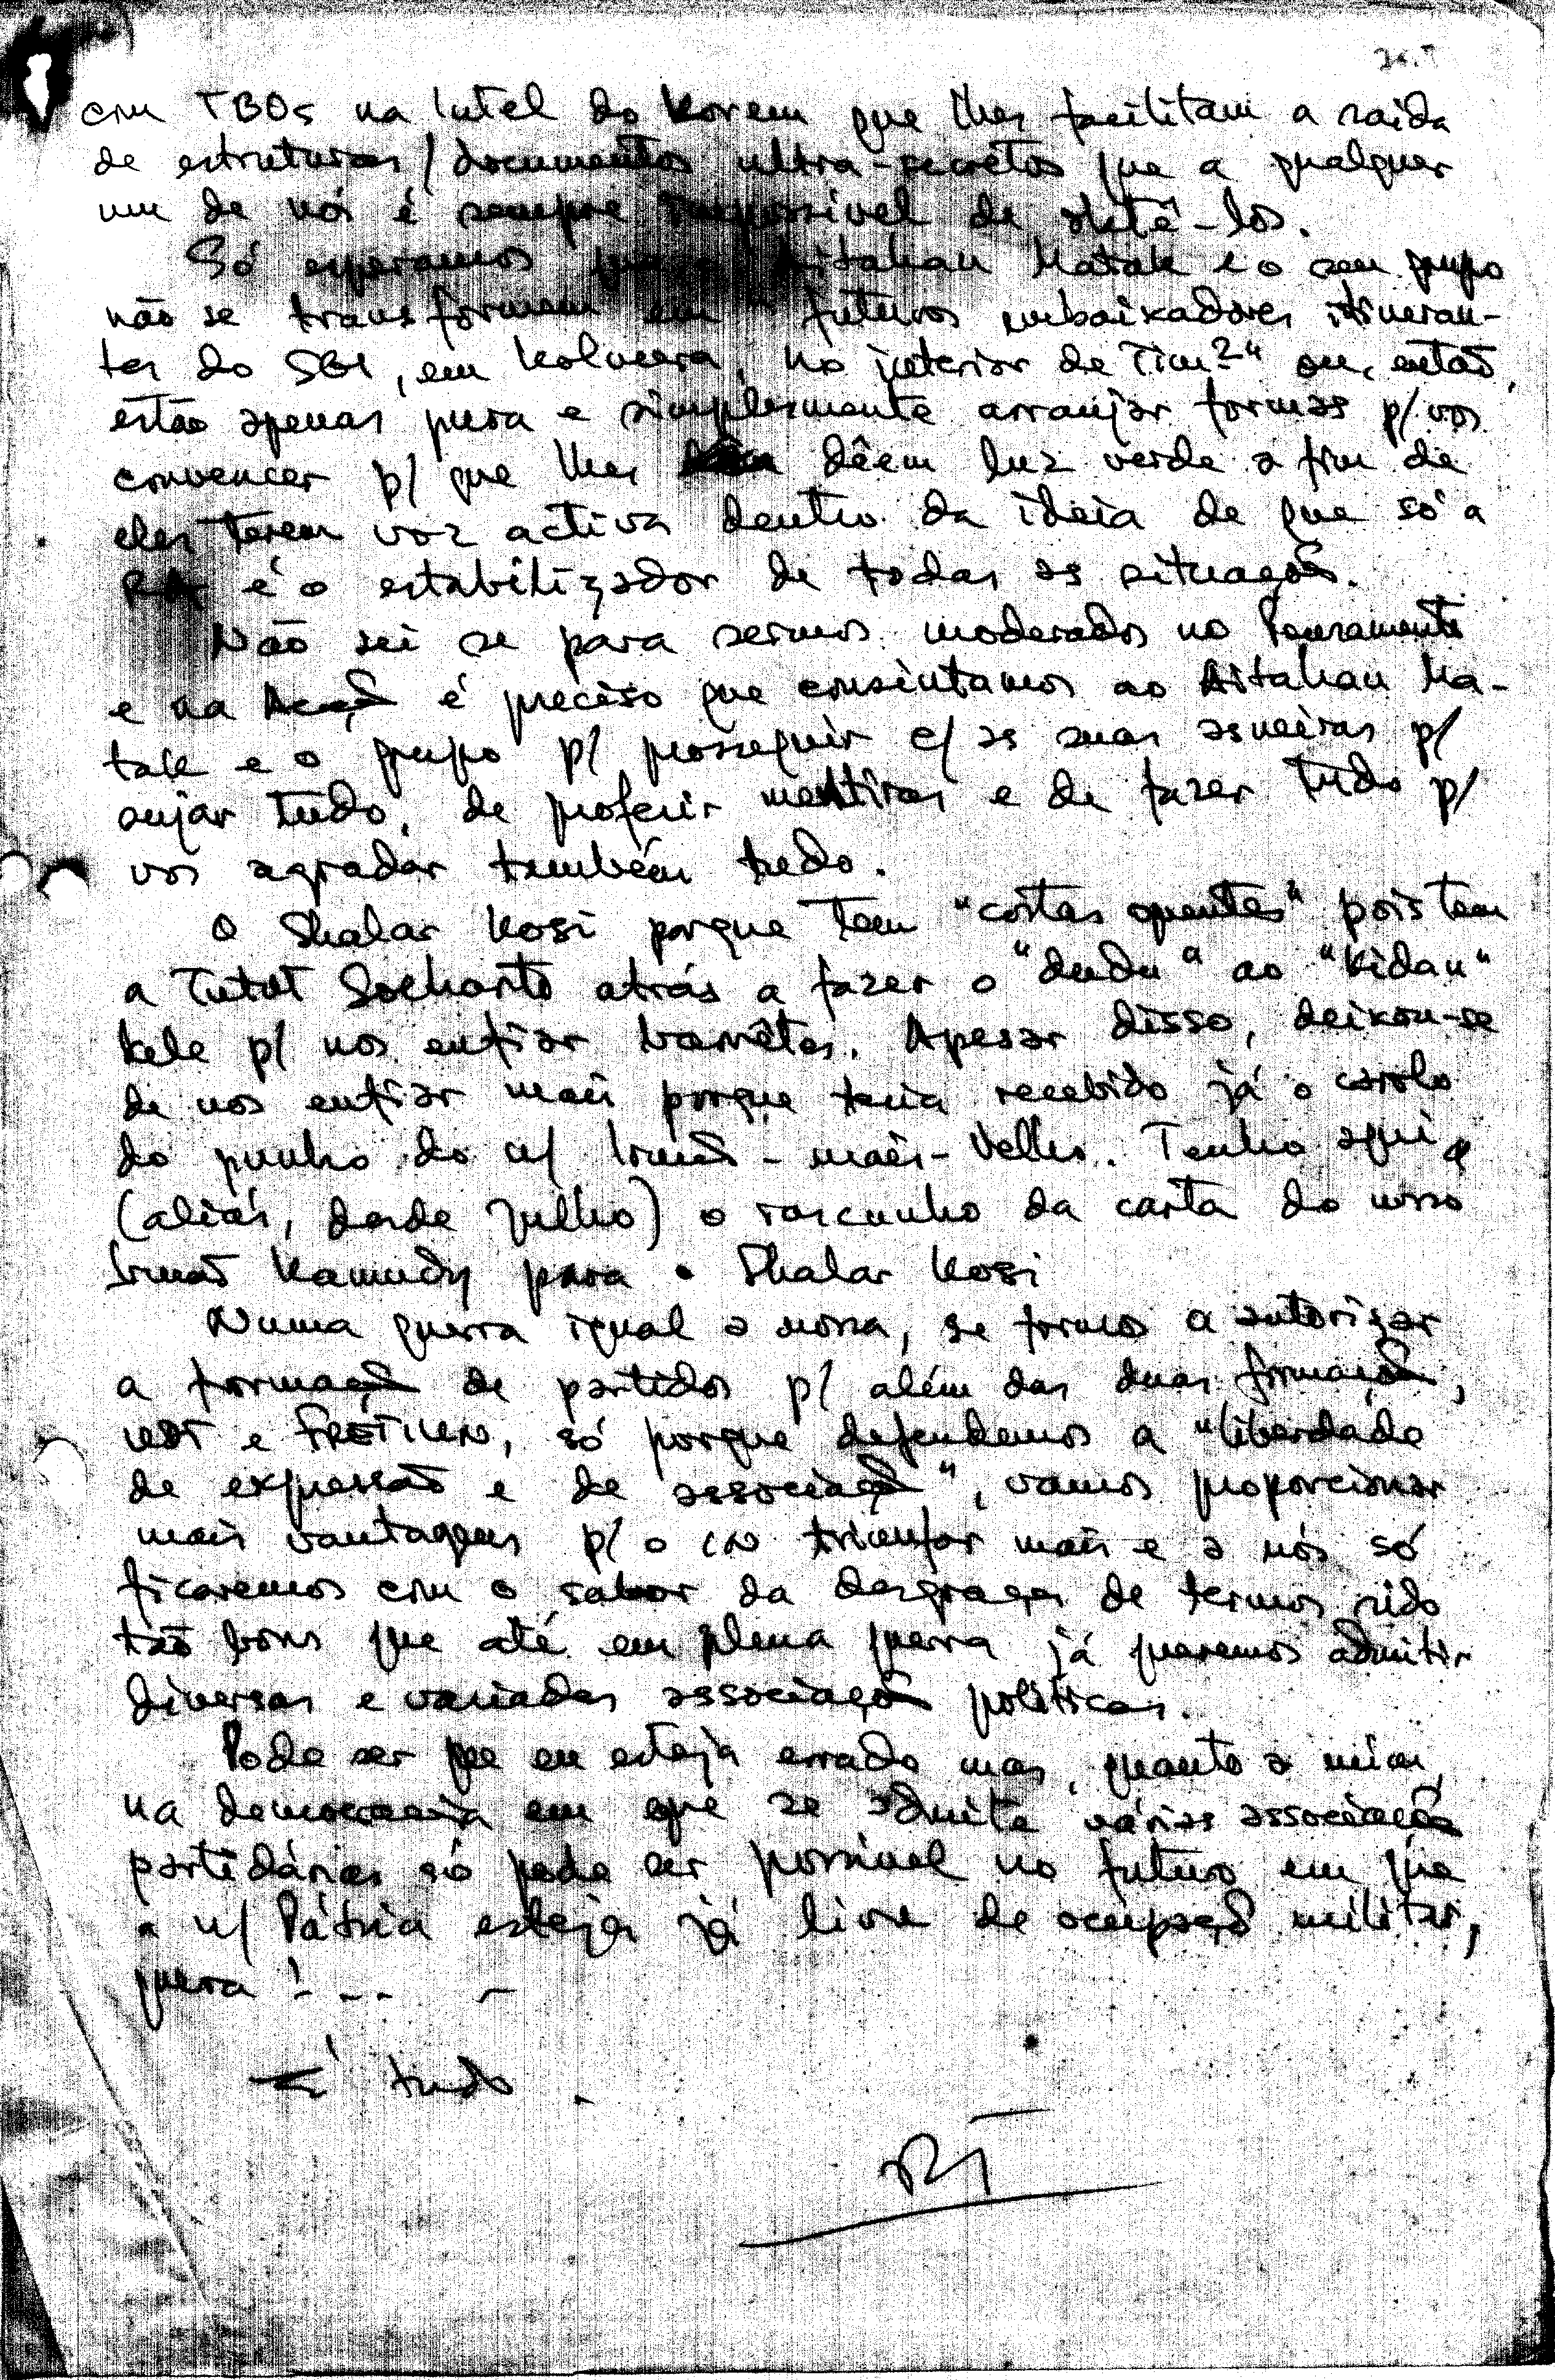 com TBOs na Intel do Korem que lhes facilitam a saída
de estruturas/documentos ultra-secretos que a qualquer
um de nós é sempre impossível de obtê-los.
Só esperamos que o Aitahan Matak e o seu grupo
não se transformem em "futuros embaixadores itineran-
tes do SGI, em Kolmera, no interior de Tim?" ou, então,
estão apenas pura e simplesmente arranjar formas p/ vos
convencer p/ que lhes dêem luz verde a fim de
eles terem voz activa dentro da ideia de que só a
RA é o estabilizador de todas as situações.
Não sei se para sermos moderados no Pensamento
e na Acção é preciso que consintamos ao Aitahan Ma-
tak e o grupo p/ prosseguir c/ as suas asneiras p/
sujar tudo, de proferir mentiras e de fazer tudo p/
vos agradar também tudo.
O Shalar Kosi porque tem "costas quentes" pois tem
a Tutut Soeharto atrás a fazer o "dudu" ao "Kidan"
kele p/ nos enfiar barretes. Apesar disso, deixou-se
de nos enfiar mais porque teria recebido já o carolo
do punho do n/ Irmão-mais-Velho. Tenho aqui
(aliás, desde Julho) o rascunho da carta do nosso
Irmão Kamudy para o Shalar Kosi
Numa guerra igual a nossa, se formos a autorizar
a formação de partidos p/ além das duas formações,
UDT e FRETILIN, só porque defendemos a "liberdade
de expressão e de associação", vamos proporcionar
mais vantagens p/ o IN triunfar mais e a nós só
ficaremos com o sabor da desgraça de termos sido
tão bons que até em plena guerra já queremos admitir
diversas e variadas associações políticas.
Pode ser que eu esteja errado mas, quanto a mim,
na democracia em que se admite várias associações
partidárias só pode ser possível no futuro em que
a n/ Pátria esteja já livre de ocupação militar,
guerra!...
É tudo.